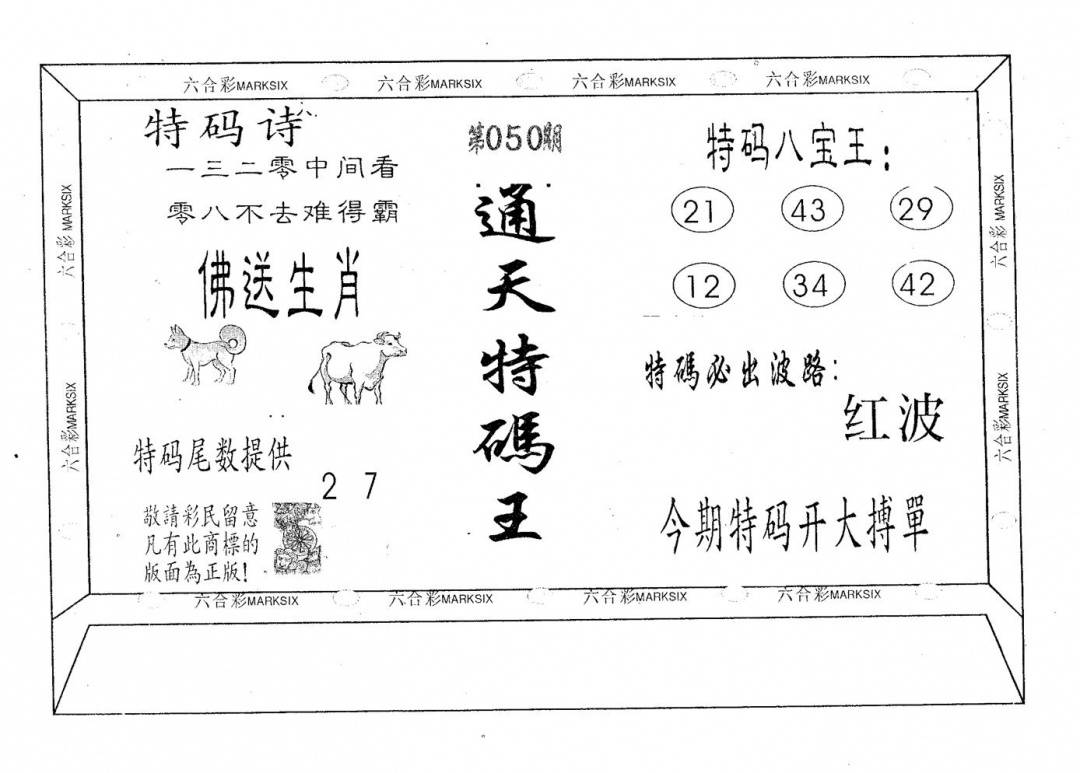 六合彩MARKSIX 六合彩MARKSIX 六合彩MARKSIX 六合彩MARKSIX
六合彩 MARKSIX
六合彩MARKSIX
特码诗
一三二零中间看
零八不去难得霸
佛送生肖
特码尾数提供
2 7
敬請彩民留意
凡有此商標的
版面為正版!
第050期
通天特碼王
特码八宝王:
21 43 29
12 34 42
特碼必出波路:
红波
今期特码开大搏單
六合彩 MARKSIX
六合彩MARKSIX
六合彩MARKSIX 六合彩MARKSIX 六合彩MARKSIX 六合彩MARKSIX